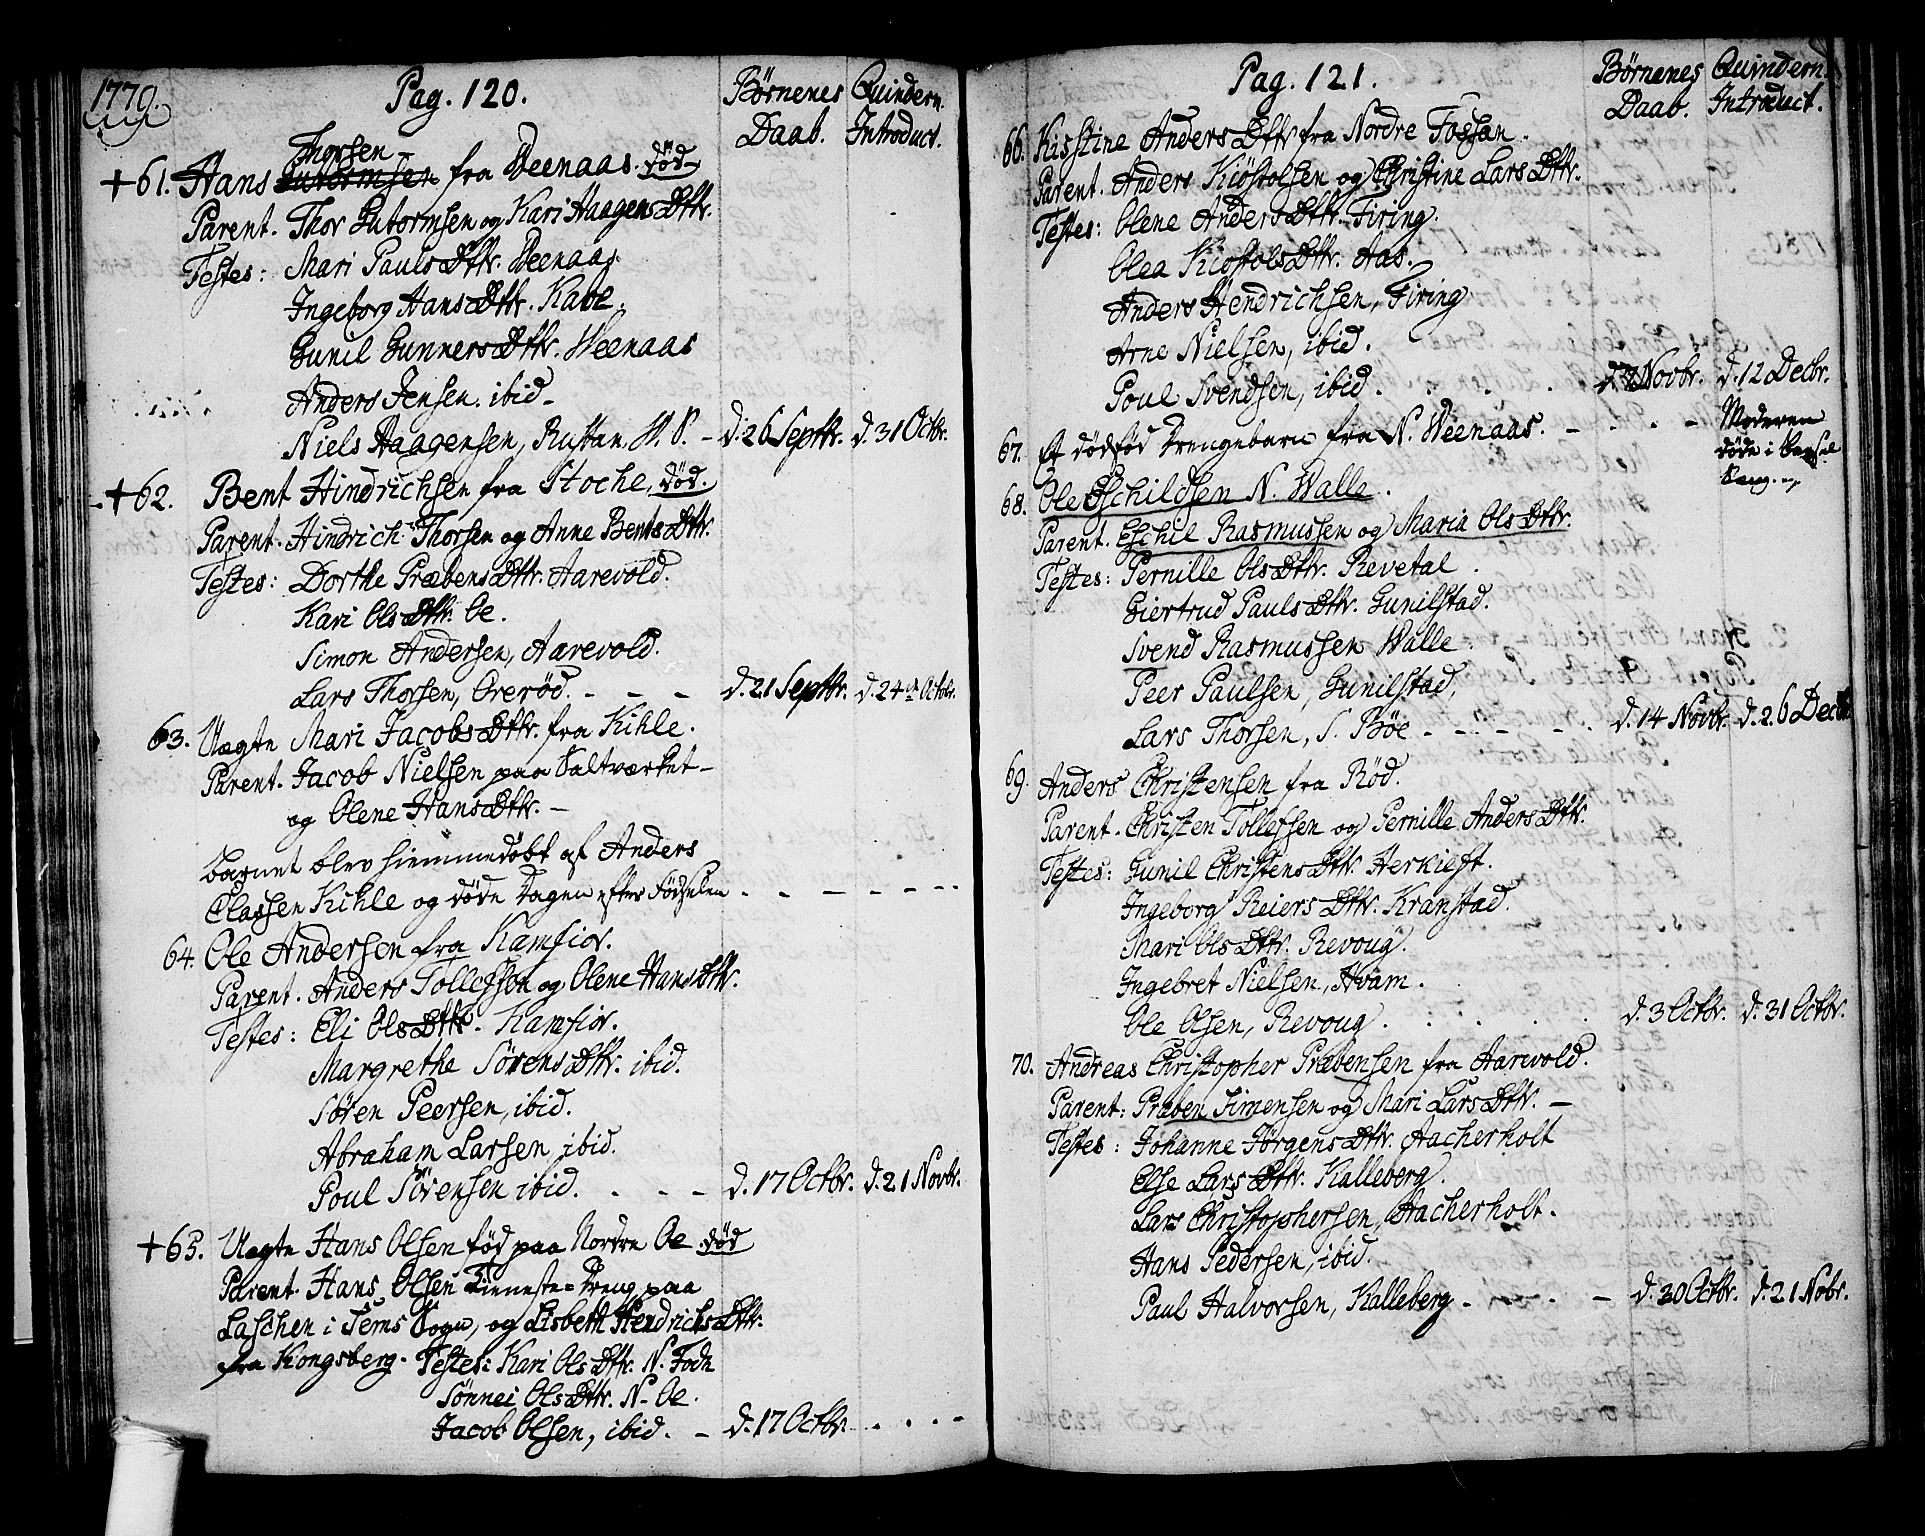 1779.
Pag. 120.
Börnenes Daab.
Quindern. Introduct.
Thorsen
+61. Hans Gutormsen fra Weenaas. død
Parent. Thor Gutormsen og Kari Haagens Dttr.
Testes: Mari Pauls Dttr. Weenaas.
Ingeborg Hans Dttr. Kabe.
Gunil Gunners Dttr. Weenaas
Anders Jensen. ibid
Niels Haagensen, Rustan. W. S. d. 26 Septbr. d. 31 Octbr.
+62. Bent Hindrichsen fra Stoche, død.
Parent. Hindrich Thorsen og Anne Bents Dttr.
Testes: Dorthe Præbens Dttr. Aarevold.
Kari Ols Dttr. Oe.
Simon Andersen, Aarevold.
Lars Thorsen, Orerød. d. 21 Septbr. d. 24 Octbr.
63. Uægte Mari Jacobs Dttr. fra Kihle.
Parent. Jacob Nielsen paa Saltværket
og Olene Hans Dttr.
Barnet blev hiemmedøbt af Anders
Classen Kihle og døde Dagen efter Fødselen
64. Ole Andersen fra Kamfior.
Parent. Anders Tollefsen og Olene Hans Dttr.
Testes: Eli Ols Dttr. Kamfior.
Margrethe Sørens Dttr. ibid.
Søren Peersen, ibid.
Abraham Larsen, ibid.
Poul Sørensen ibid. d. 17 Octbr. d. 21 Novbr.
+65. Uægte Hans Olsen fød paa Nordre Oe død
Parent. Hans Olsen Tieneste-Dreng paa
Laschen i Sems Sogn, og Lisbeth Hendrichs Dttr.
fra Kongsberg. Testes: Kari Ols Dttr. N. Fode
Sønnei Ols Dttr. N. Oe.
Jacob Olsen, ibid. d. 17 Octbr.
Pag. 121.
Börnenes Daab.
Quindern. Introduct.
66. Kisstine Anders Dttr. fra Nordre Fossan.
Parent. Anders Kiöstolsen og Christine Lars Dttr.
Testes: Olene Anders Dttr. Firing.
Olea Kiöstols Dttr. Aas.
Anders Hendrichsen, Firing
Arne Nielsen, ibid.
Poul Svendsen, ibid. d. 7 Novbr. d. 12 Decbr.
67. Et dødfød Drengebarn fra N. Weenaas. Moderen
døde i Barsel
Seng.
68. Ole Eschildsen N. Walle.
Parent. Eschil Rasmussen og Maria Ols Dttr.
Testes: Pernille Ols Dttr. Revetal.
Giertrud Pauls Dttr. Gunilstad.
Svend Rasmussen Walle.
Peer Paulsen, Gunilstad,
Lars Thorsen, S. Böe d. 14 Novbr. d. 26 Decbr.
69. Anders Christensen fra Röd.
Parent. Christen Tollefsen og Pernille Anders Dttr.
Testes: Gunil Christens Dttr. Herkieft.
Ingeborg Reiers Dttr. Kranstad.
Mari Ols Dttr. Revoug.
Ingebret Nielsen, Hvam.
Ole Olsen, Revoug. d. 3 Octbr. d. 31 Octbr.
70. Andreas Christopher Præbensen fra Aarevold.
Parent: Præben Simensen og Mari Lars Dttr.
Testes: Johanne Jörgens Dttr. Aacherholt
Else Lars Dttr. Kalleberg.
Lars Christophersen, Aacherholt.
Hans Pedersen, ibid.
Paul Halvorsen, Kalleberg. d. 30 Octbr. d. 21 Nobr.